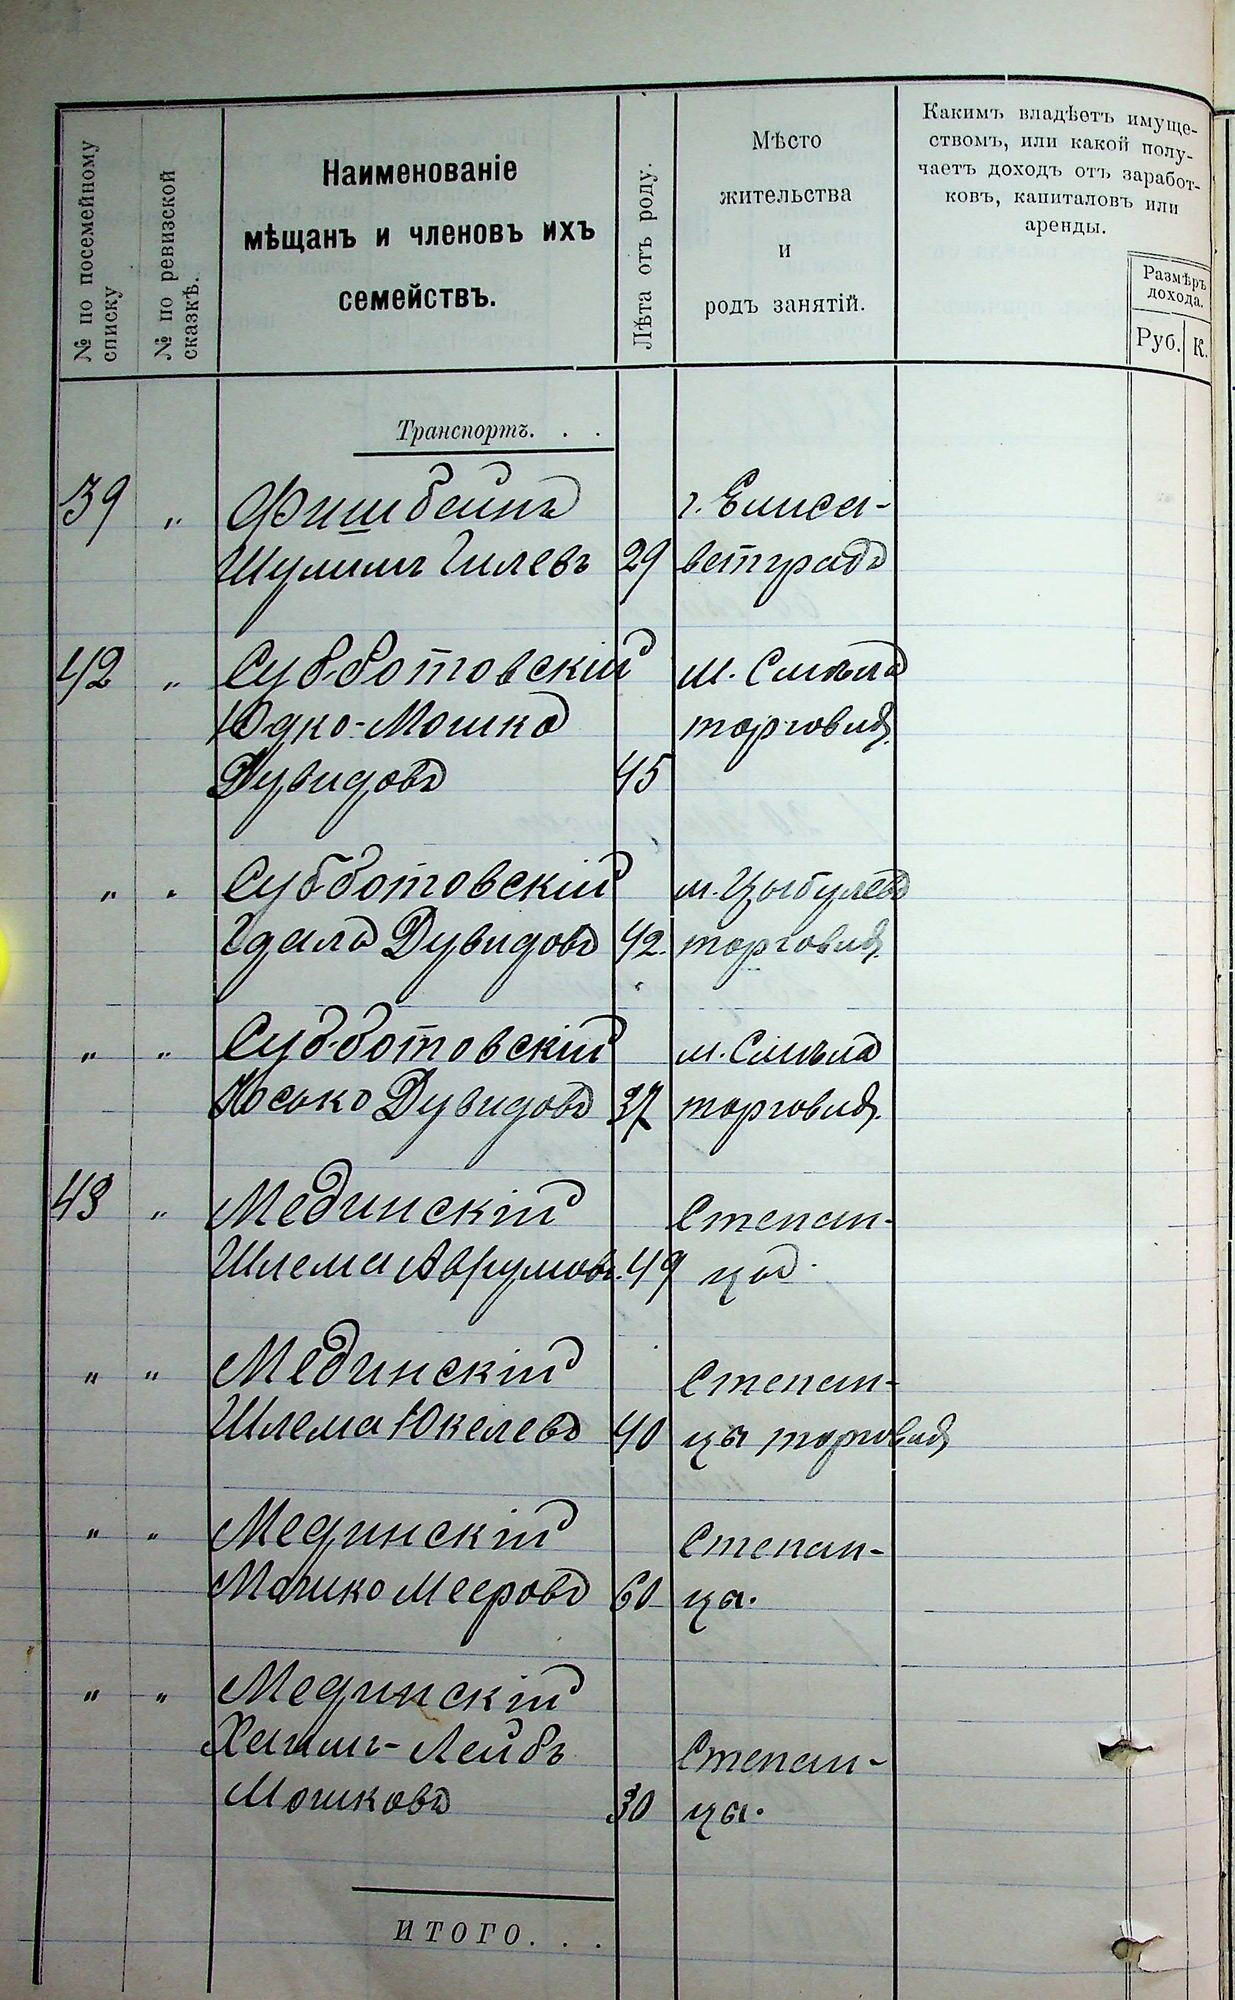 № по посемейному
списку
№ по ревизской
сказкѣ.
Наименованіе
мѣщанъ и членовъ ихъ
семействъ.
Лѣта отъ роду.
Мѣсто
жительства
и
родъ занятій.
Какимъ владѣетъ имуще-
ствомъ, или какой полу-
чаетъ доходъ отъ заработ-
ковъ, капиталовъ или
аренды.
Размѣръ
дохода.
Руб. К.
Транспортъ. . .
39 „ Фишбейнъ г. Елиса-
Шулимъ Гилевъ 29 ветградъ
42 „ Субботовскій м. Смѣла
Юдко-Мошко торговля.
Дувидовъ 45
„ „ Субботовскій м. Цыбулевъ
Гдаль Дувидовъ 42. торговля.
„ „ Субботовскій м. Смѣла
Юсько Дувидовъ 37 торговля.
43 „ Мединскій Степан-
Шлема Аврумовъ. 49 цы.
„ „ Мединскій Степан-
Шлема Юкелевъ 40 цы торговля
„ „ Мединскій Степан-
Мошко Мееровъ 60 цы.
„ „ Мединскій
Хаимъ-Лейбъ Степан-
Мошковъ 30 цы.
ИТОГО. . .